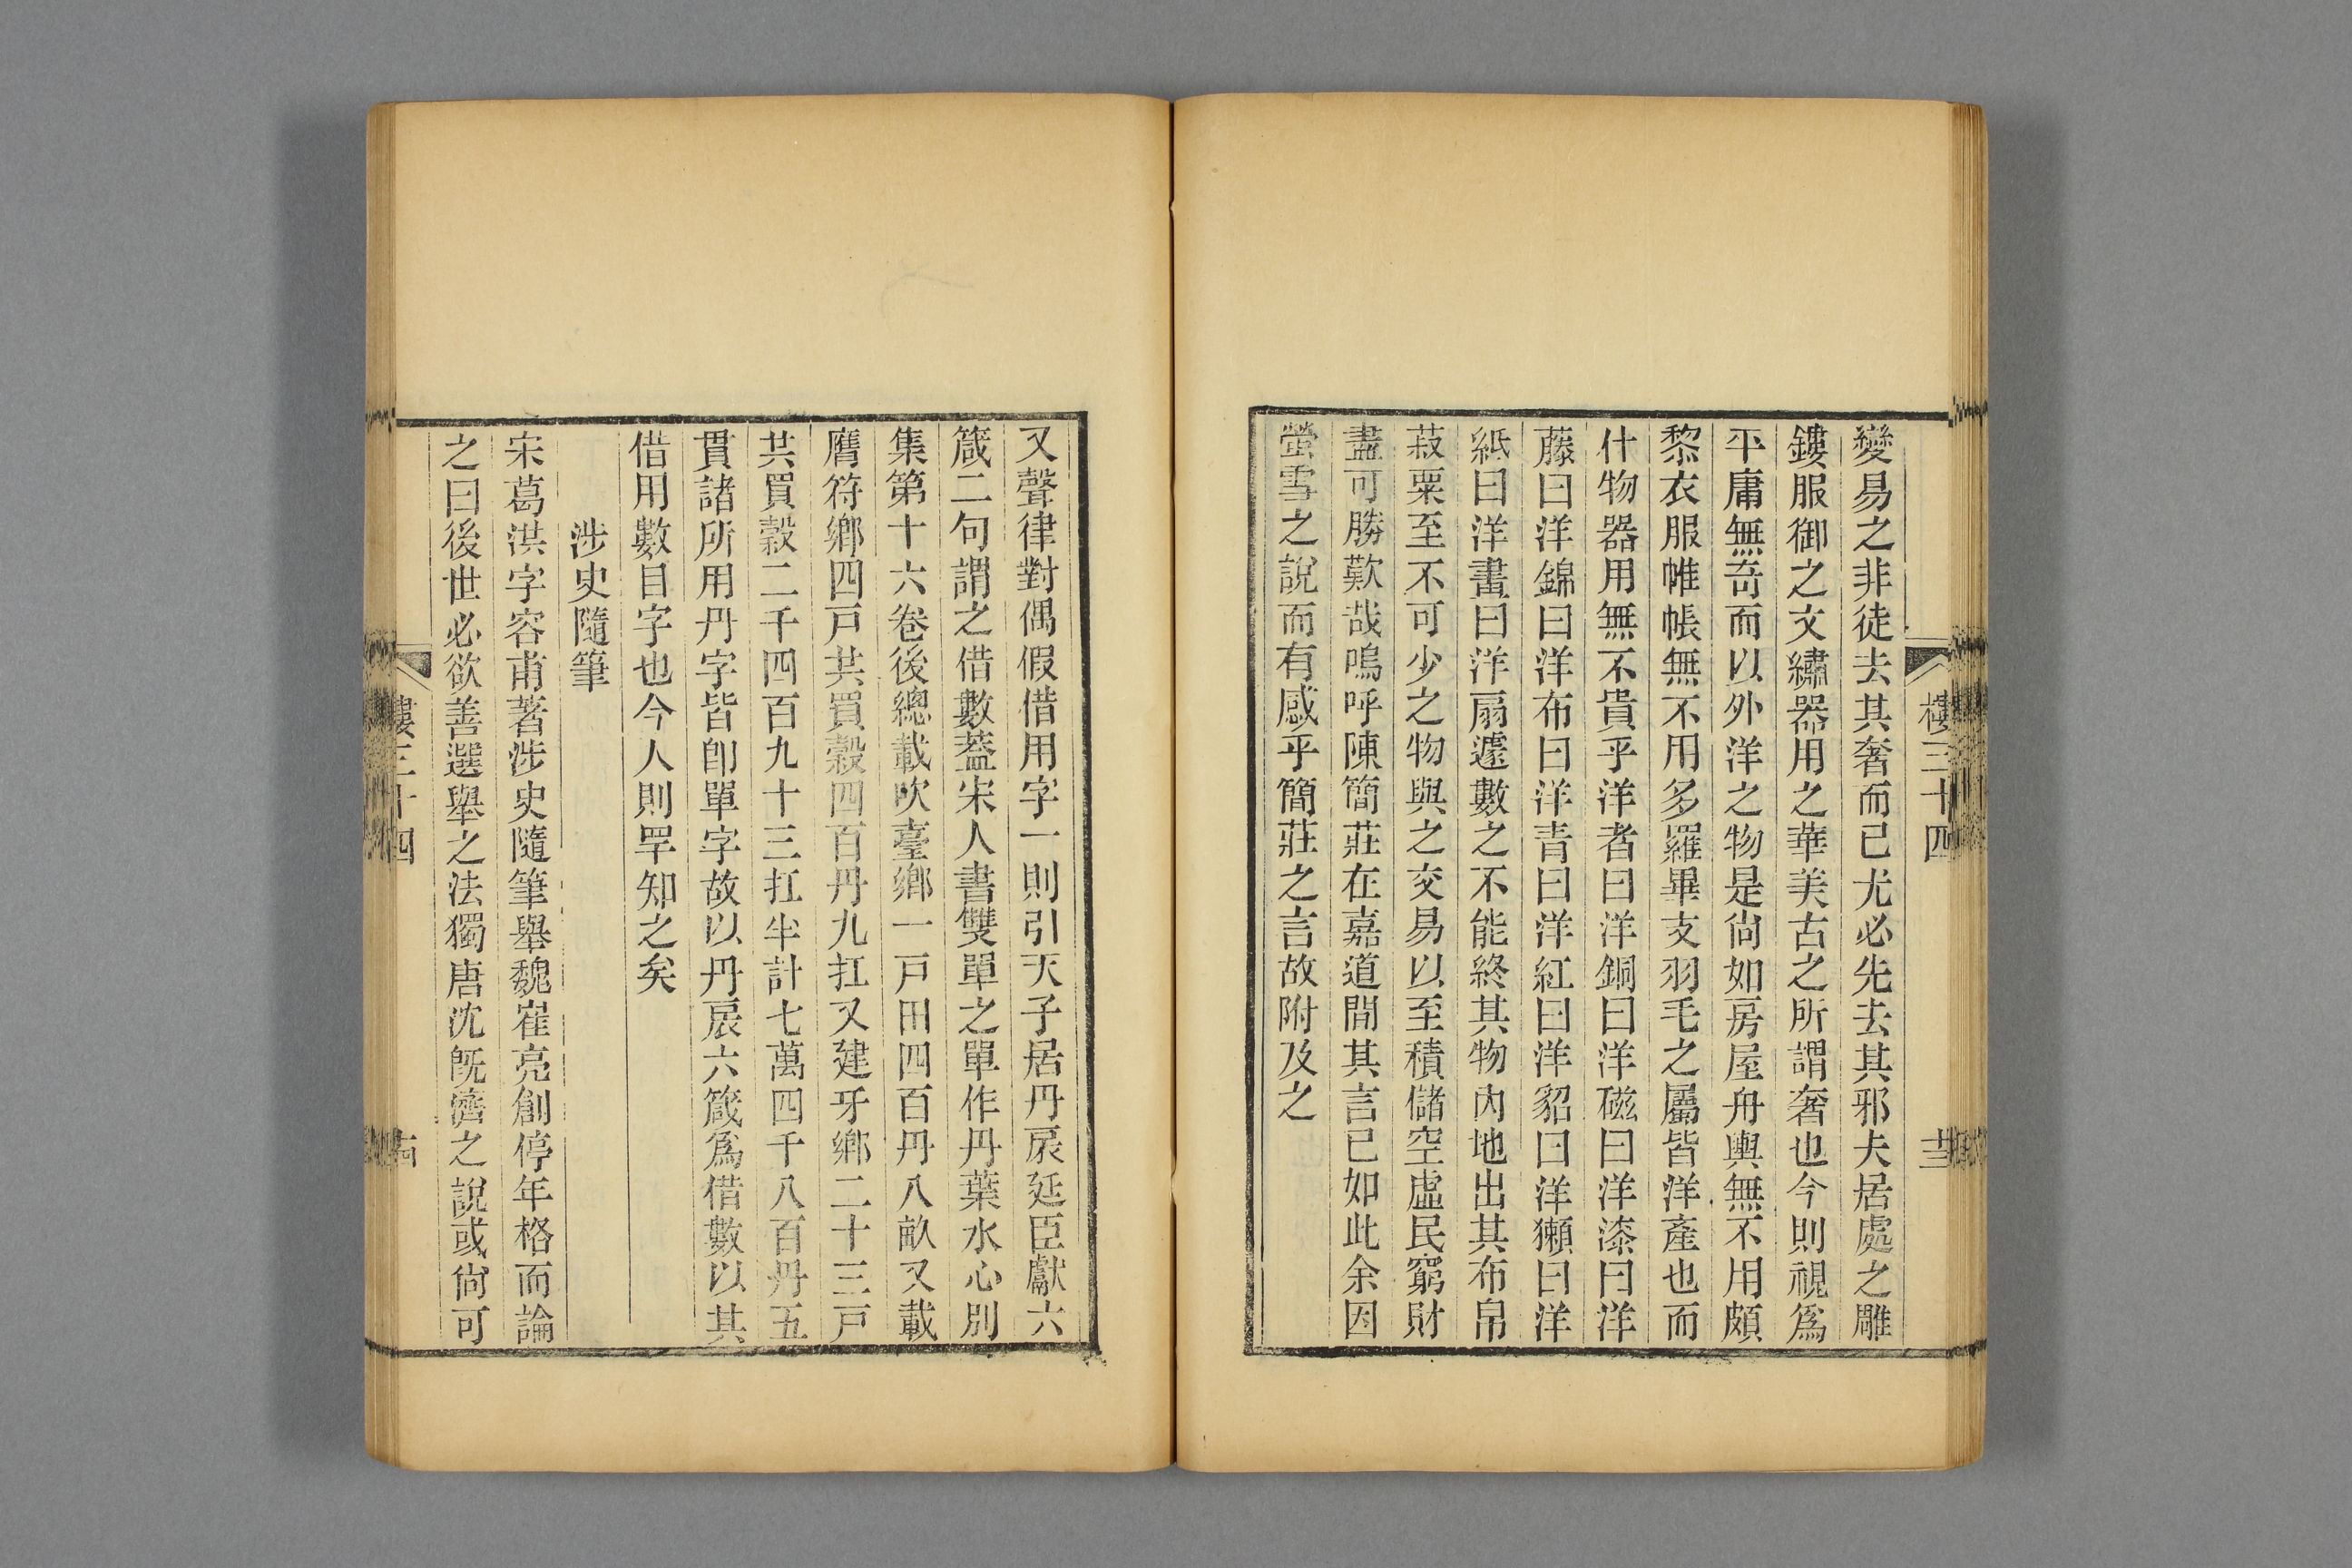 變易之非徒去其奢而已尤必先去其邪夫居處之雕
鏤服御之文繡器用之華美古之所謂奢也今則視爲
平庸無奇而以外洋之物是尙如房屋舟輿無不用頗
黎衣服帷帳無不用多羅畢支羽毛之屬皆洋產也而
什物器用無不貴乎洋者曰洋銅曰洋磁曰洋漆曰洋
藤曰洋錦曰洋布曰洋青曰洋紅曰洋貂曰洋獺曰洋
紙曰洋畫曰洋扇遽數之不能終其物內地出其布帛
菽粟至不可少之物與之交易以至積儲空虛民窮財
盡可勝歎哉嗚呼陳簡莊在嘉道間其言已如此余因
螢雪之說而有感乎簡莊之言故附及之
樓三十四
又聲律對偶假借用字一則引天子居丹扆延臣獻六
箴二句謂之借數葢宋人書雙單之單作丹葉水心別
集第十六卷後總載吹臺鄉一戸田四百丹八畝又載
膺符鄉四戸共買穀四百丹九扛又建牙鄉二十三戸
共買穀二千四百九十三扛半計七萬四千八百丹五
貫諸所用丹字皆卽單字故以丹扆六箴爲借數以其
借用數目字也今人則罕知之矣
涉史隨筆
宋葛洪字容甫著涉史隨筆舉魏崔亮創停年格而論
之曰後世必欲善選舉之法獨唐沈旣濟之說或尙可
樓三十四